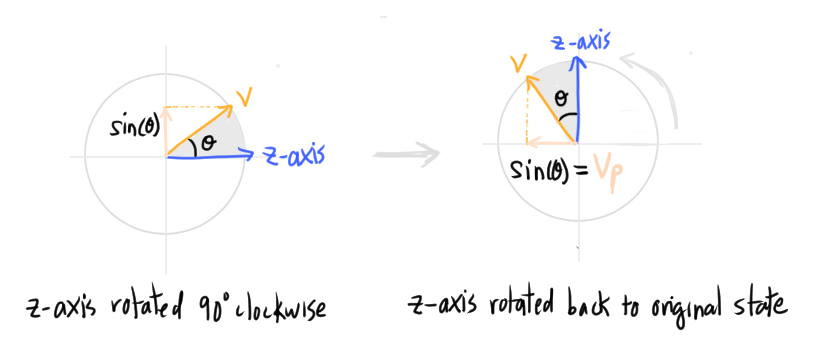 V
sin(θ)
θ
z-axis
z-axis rotated 90° clockwise
z-axis
V
θ
sin(θ) = Vp
z-axis rotated back to original state